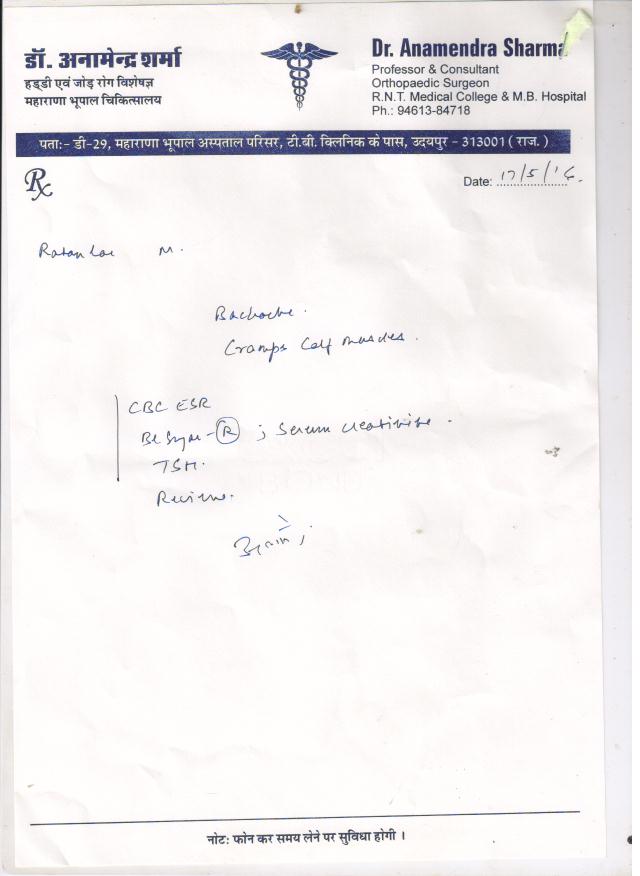 डॉ. अनामेन्द्र शर्मा
हड्डी एवं जोड़ रोग विशेषज्ञ
महाराणा भूपाल चिकित्सालय
Dr. Anamendra Sharma
Professor & Consultant
Orthopaedic Surgeon
R.N.T. Medical College & M.B. Hospital
Ph.: 94613-84718
पताः- डी-29, महाराणा भूपाल अस्पताल परिसर, टी.बी. क्लिनिक के पास, उदयपुर - 313001 ( राज. )
Rx
Date: 17/5/16.
Ratan Lal M.
Backache.
Cramps Calf muscles.
CBC ESR
Bl Sugar - R ; Serum creatinine.
TSH.
Review.
नोटः फोन कर समय लेने पर सुविधा होगी ।